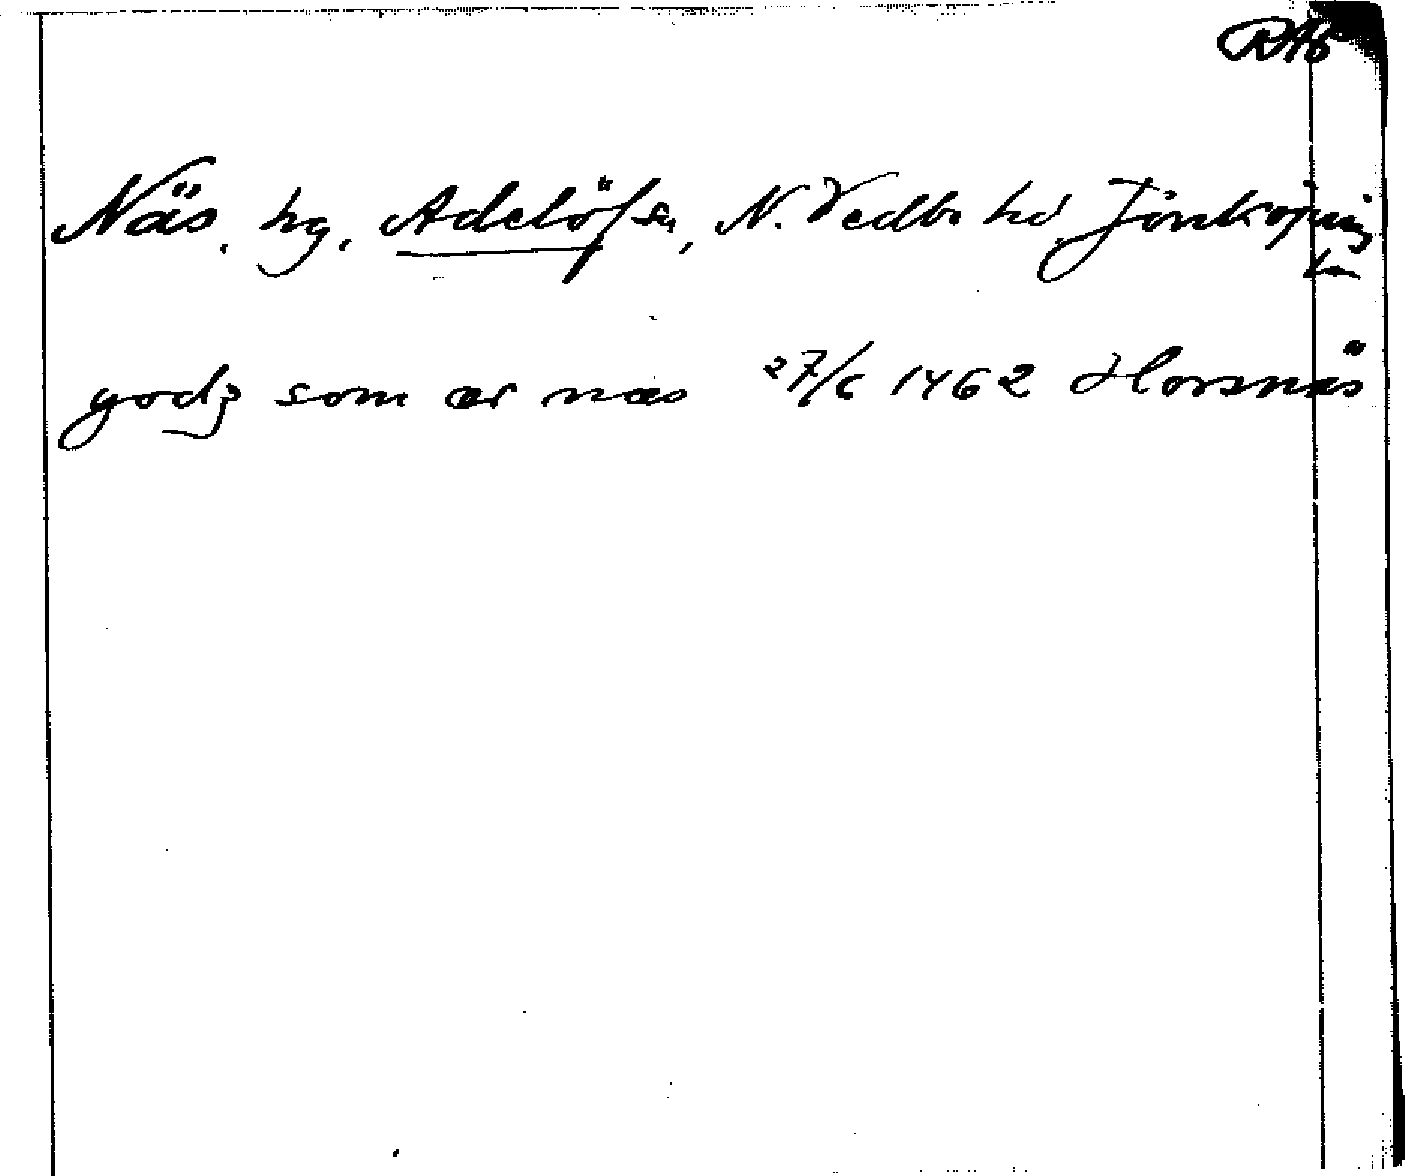 RAb
Näs, hg, Adelöf sn, N. Vedbo hd Jönköping
L
godz som ær næs 27/6 1462 Horsnäs